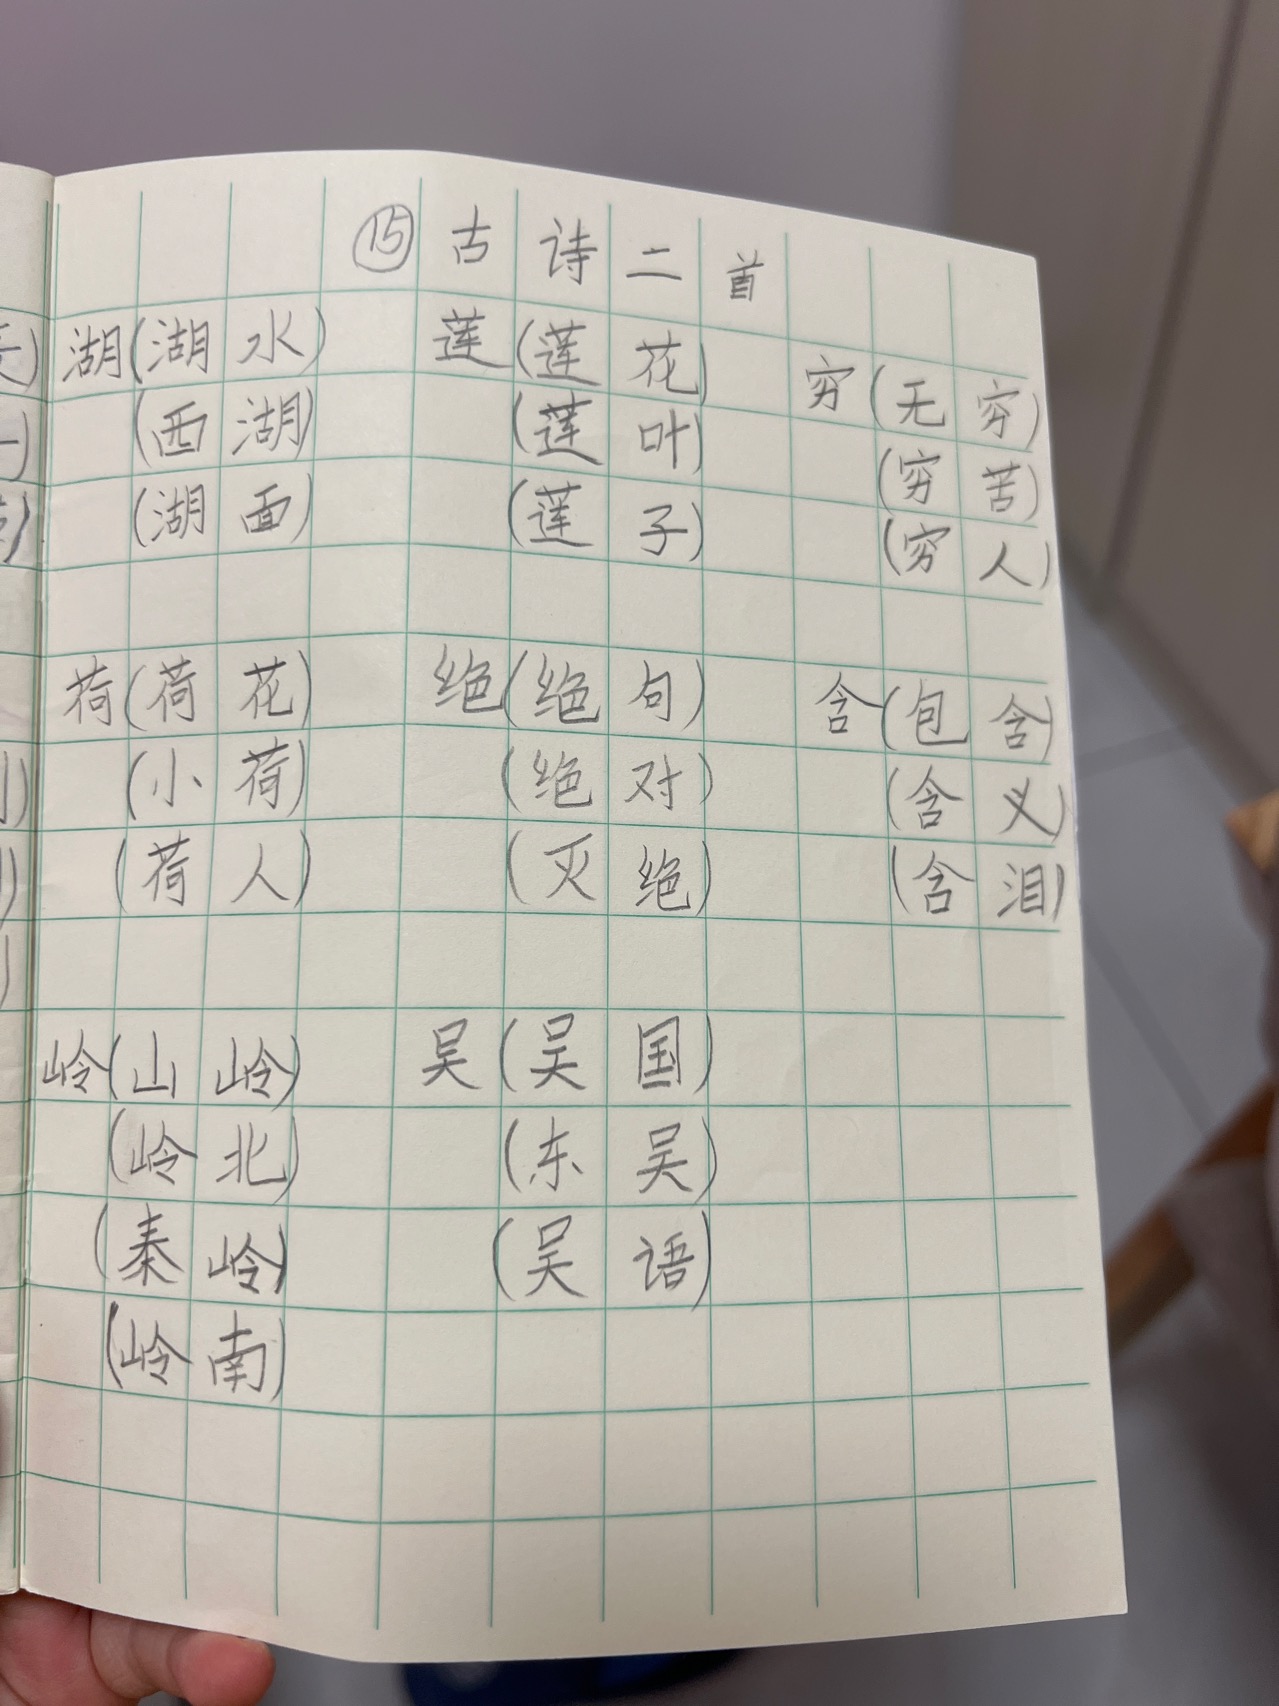 ⑮古诗二首
湖(湖水) 莲(莲花) 穷(无穷)
(西湖) (莲叶) (穷苦)
(湖面) (莲子) (穷人)
荷(荷花) 绝(绝句) 含(包含)
(小荷) (绝对) (含义)
(荷人) (灭绝) (含泪)
岭(山岭) 吴(吴国)
(岭北) (东吴)
(秦岭) (吴语)
(岭南)